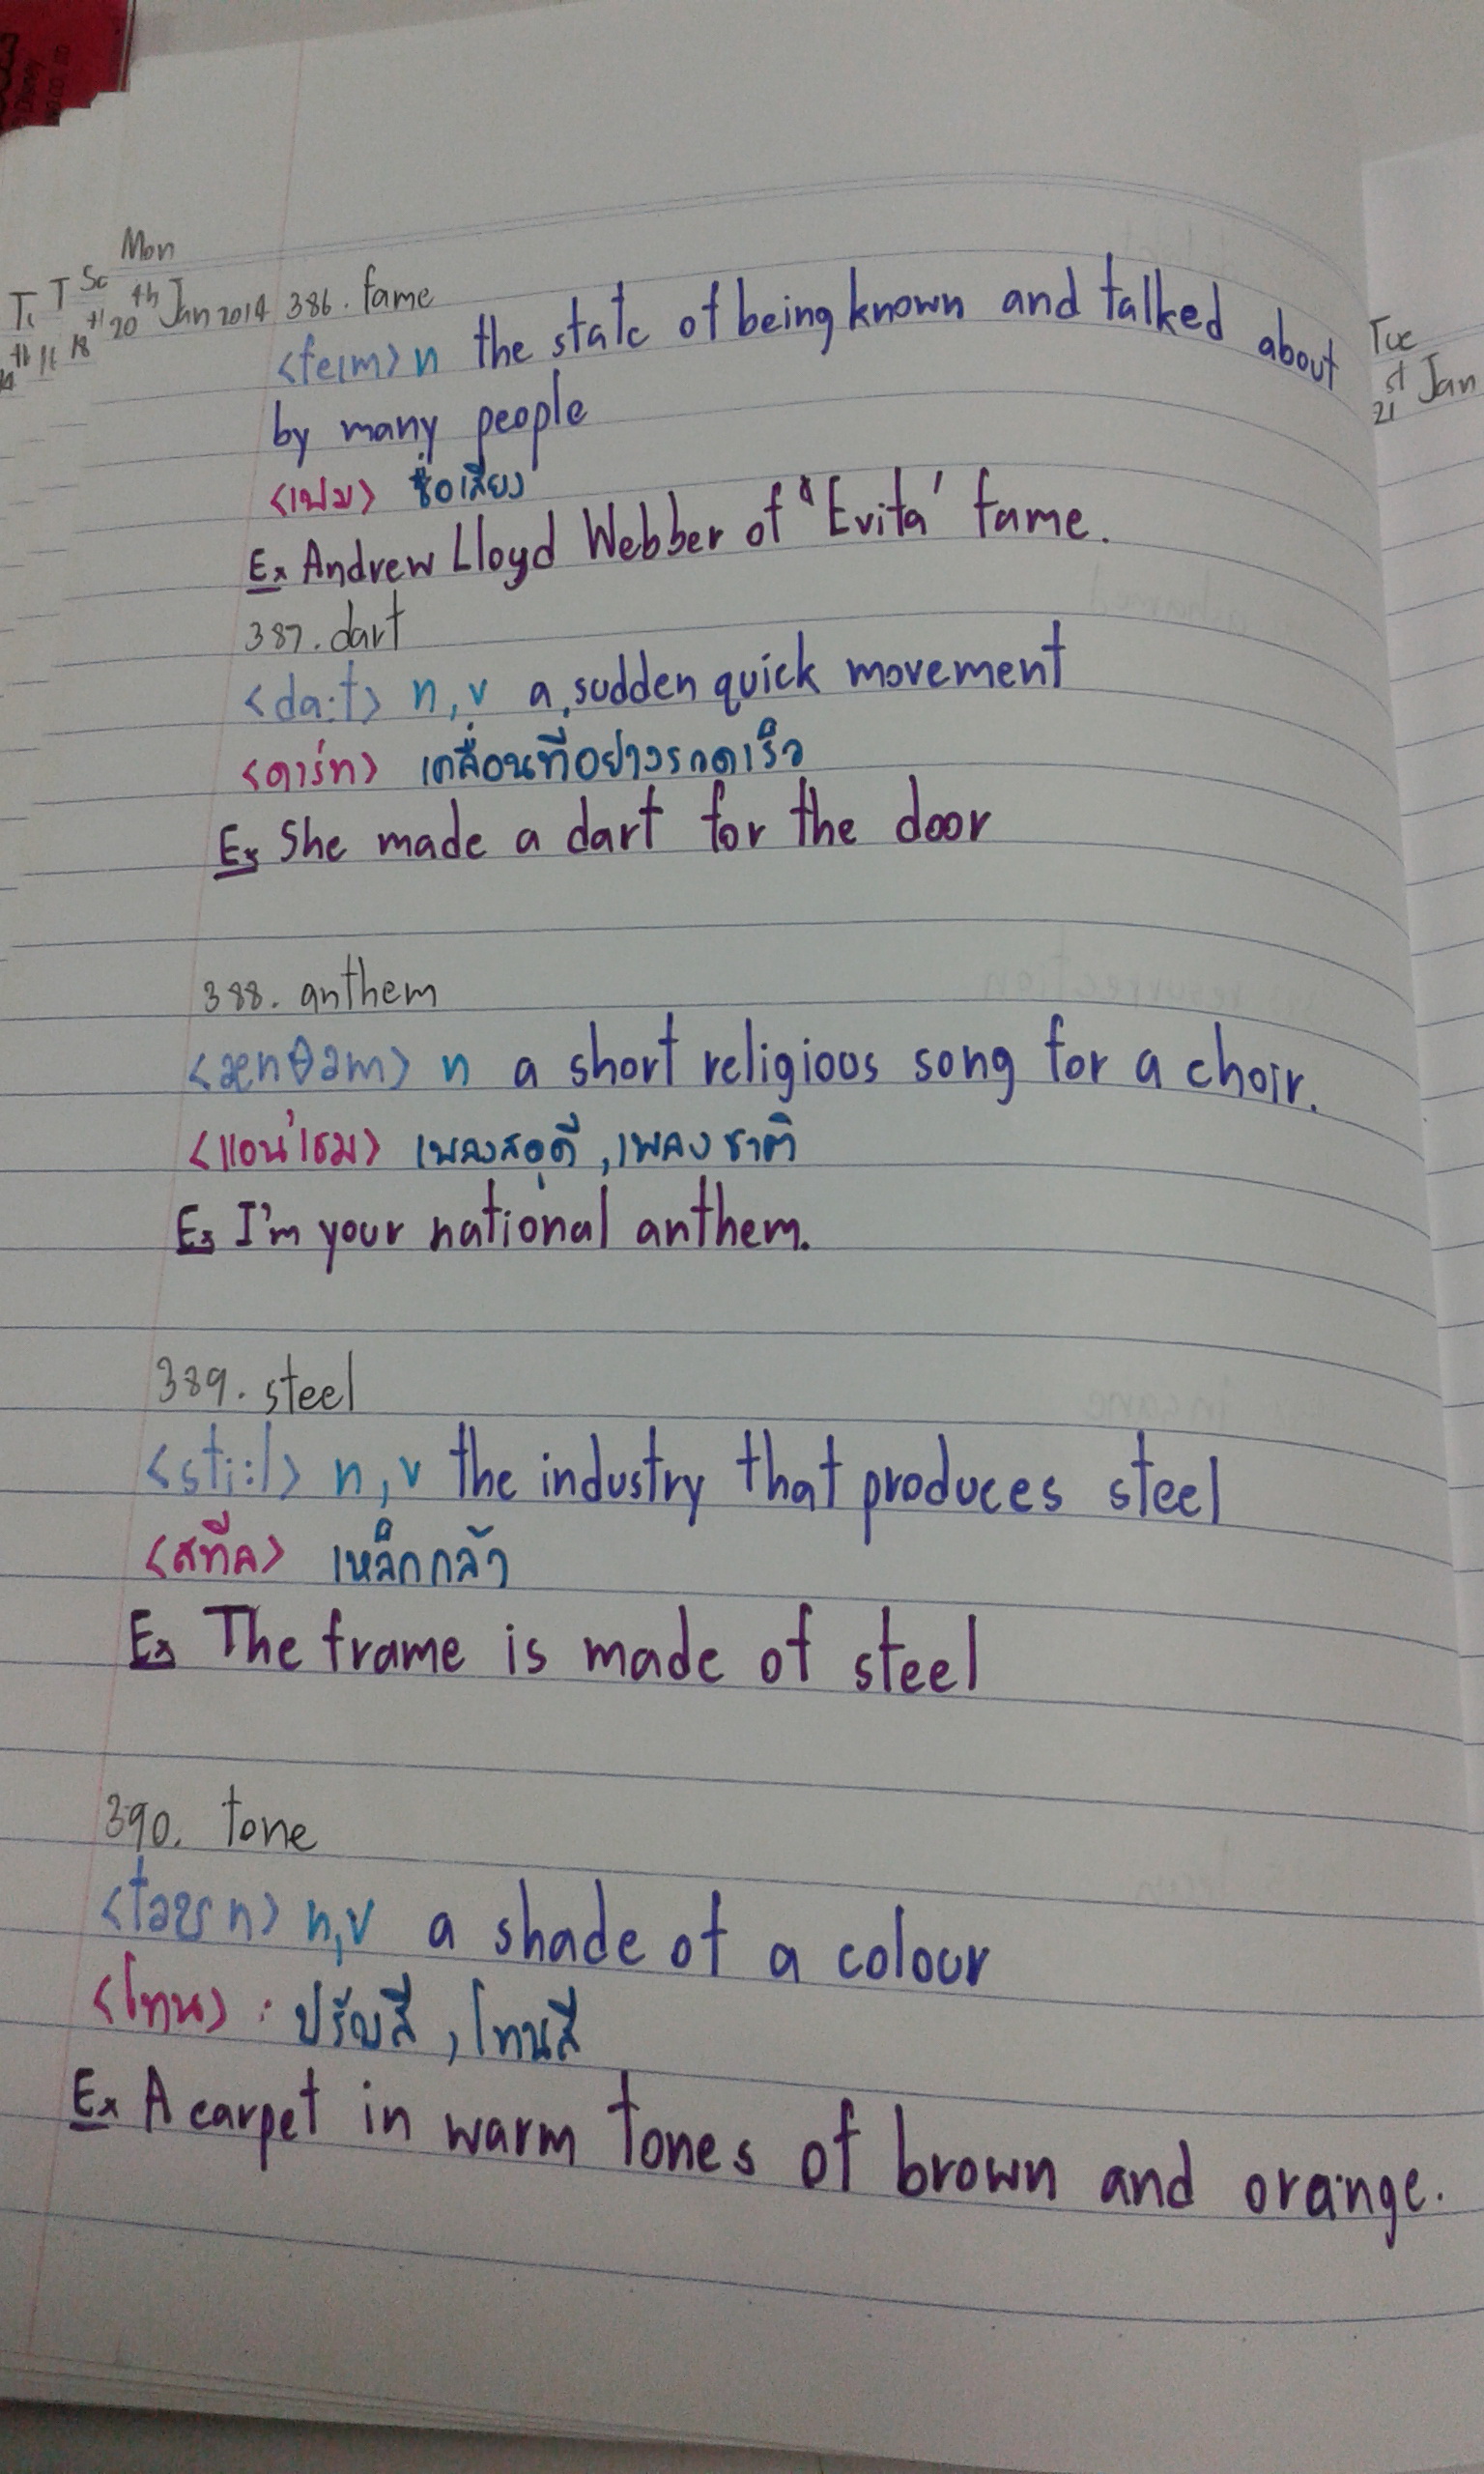 Mon
20th Jan 2014 386. fame
<feɪm> n the state of being known and talked about
by many people
<เฟม> ชื่อเสียง
Ex Andrew Lloyd Webber of 'Evita' fame.
387. dart
<da:t> n, v a sudden quick movement
<ดาร์ท> เคลื่อนที่อย่างรวดเร็ว
Ex She made a dart for the door
388. anthem
<ænθəm> n a short religious song for a choir.
<แอน'เธม> เพลงสดุดี, เพลงชาติ
Ex I'm your national anthem.
389. steel
<sti:l> n, v the industry that produces steel
<สทีล> เหล็กกล้า
Ex The frame is made of steel
390. tone
<təʊn> n, v a shade of a colour
<โทน> : ปรับสี, โทนสี
Ex A carpet in warm tones of brown and orange.
Tue
21st Jan